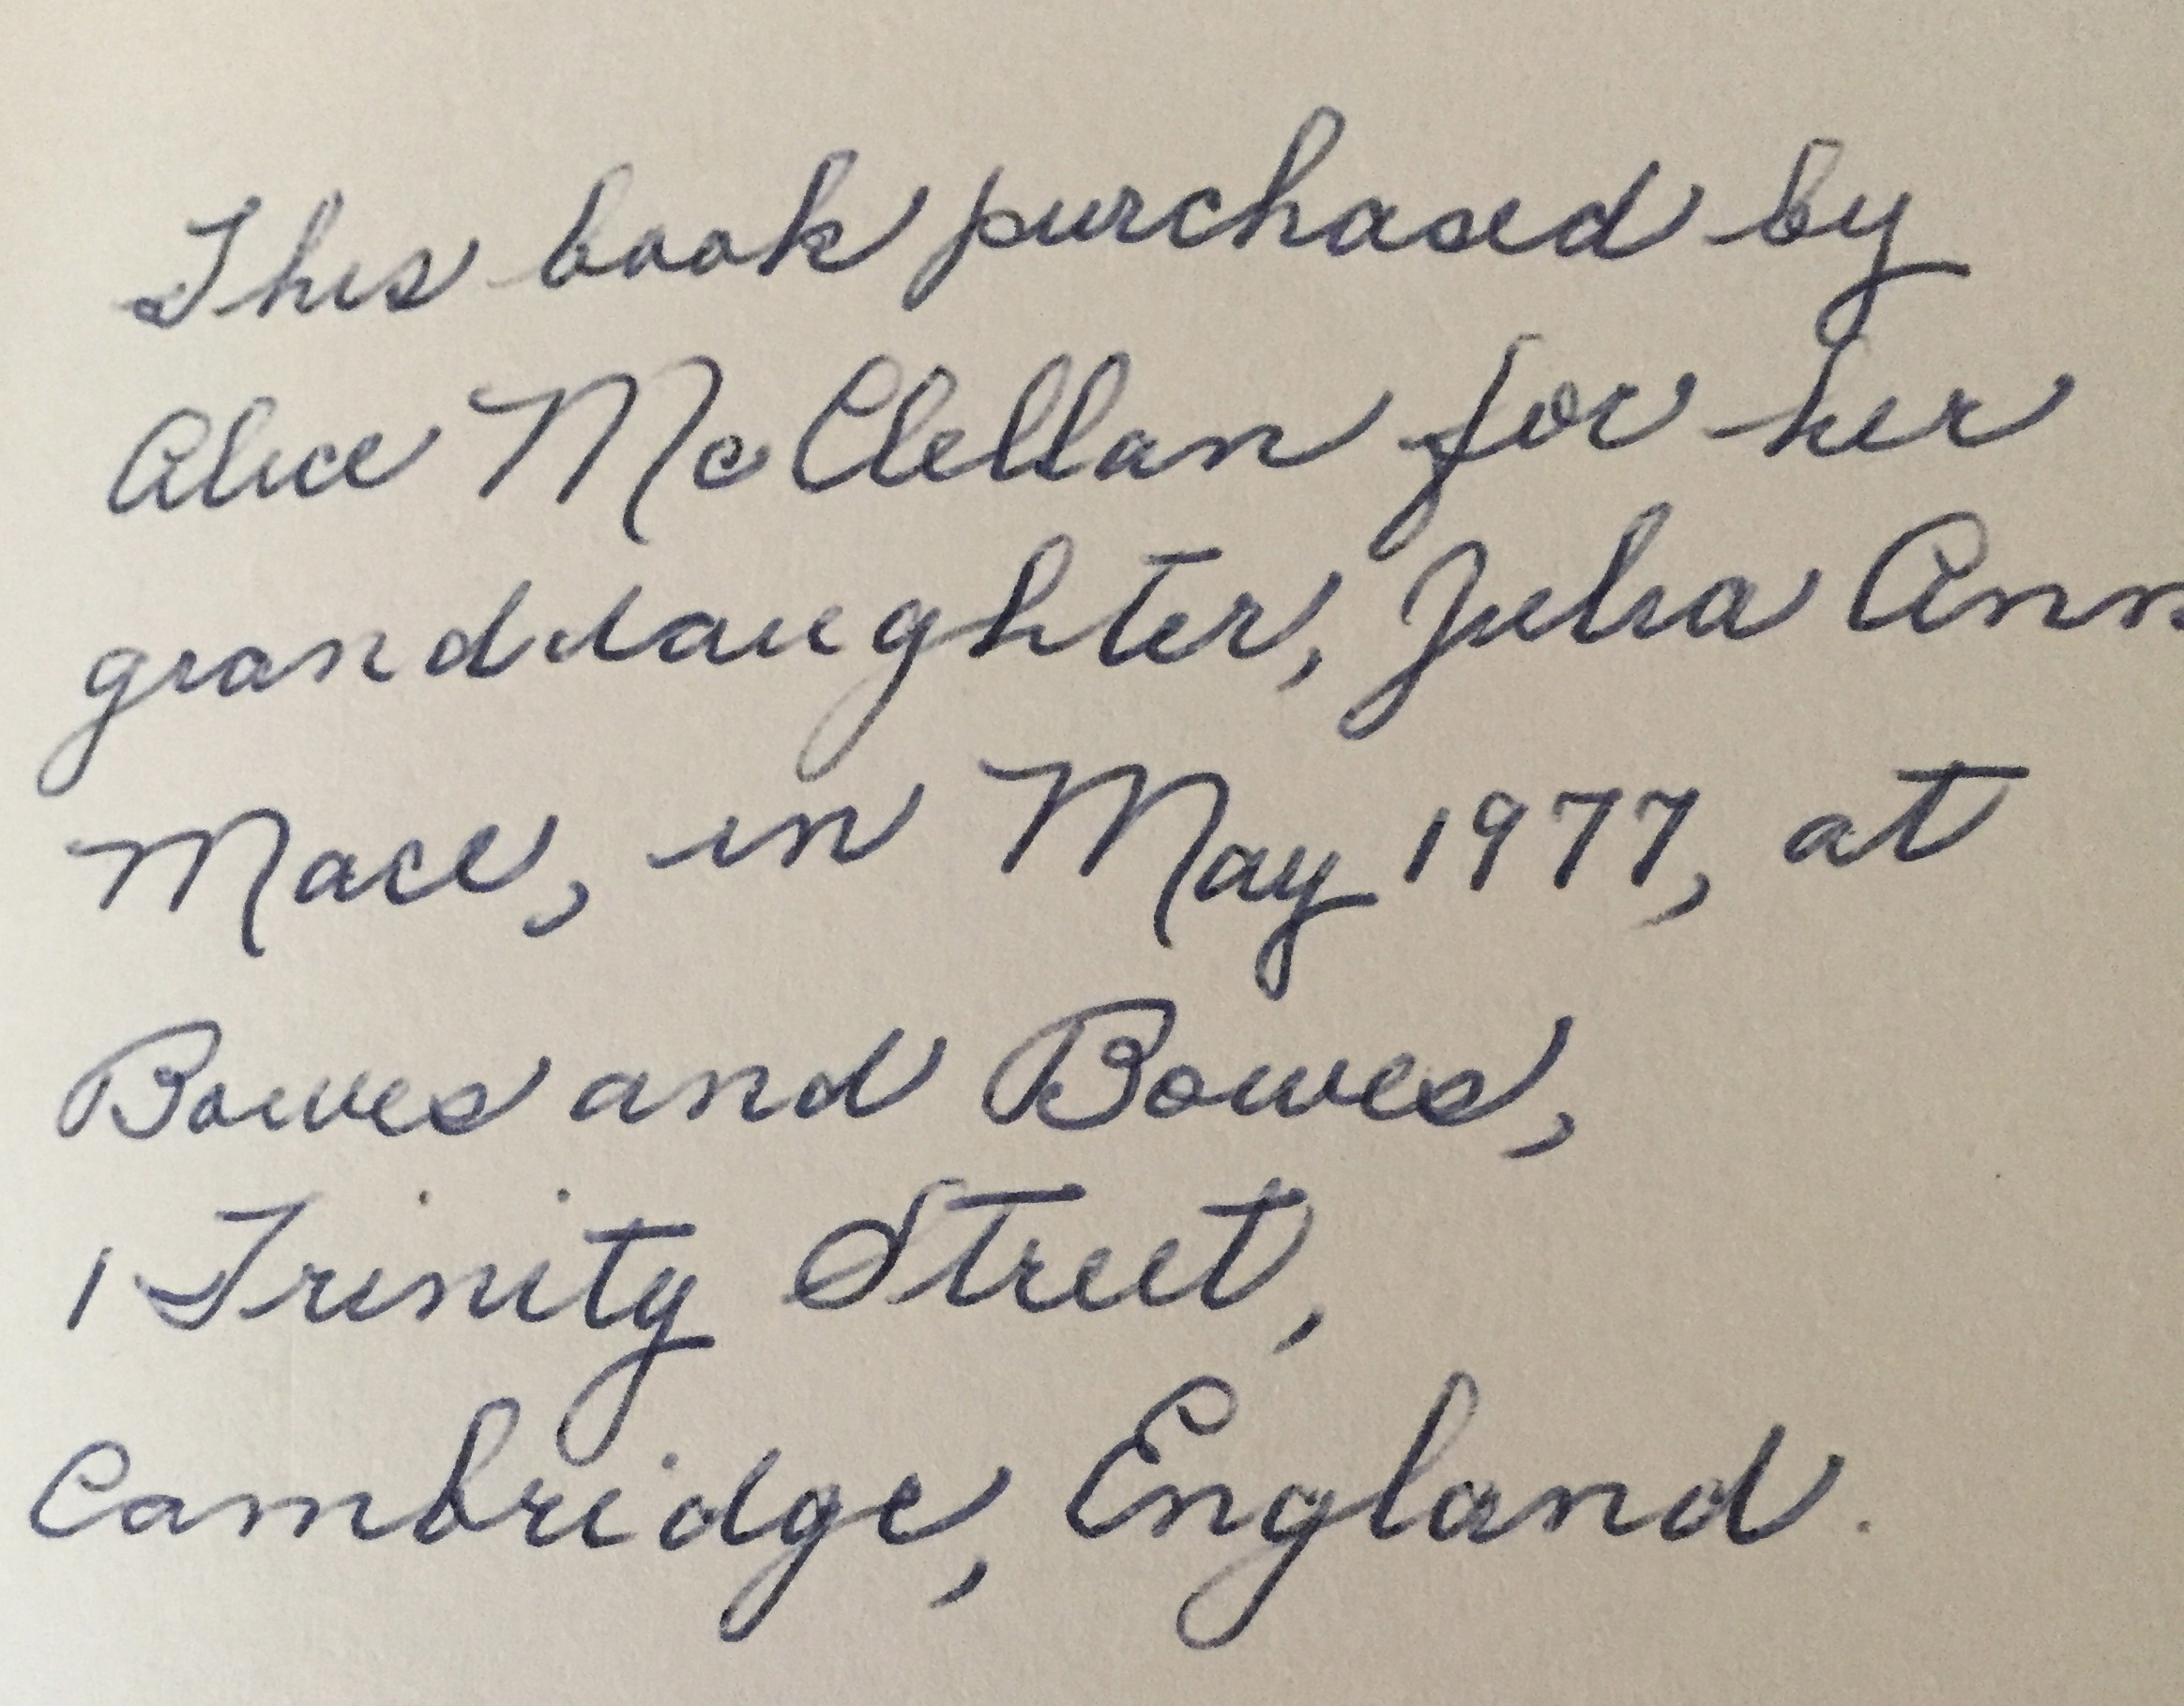 This book purchased by
Alice McClellan for her
granddaughter, Julia Ann
Mace, in May 1977, at
Bowes and Bowes,
1 Trinity Street,
Cambridge, England.